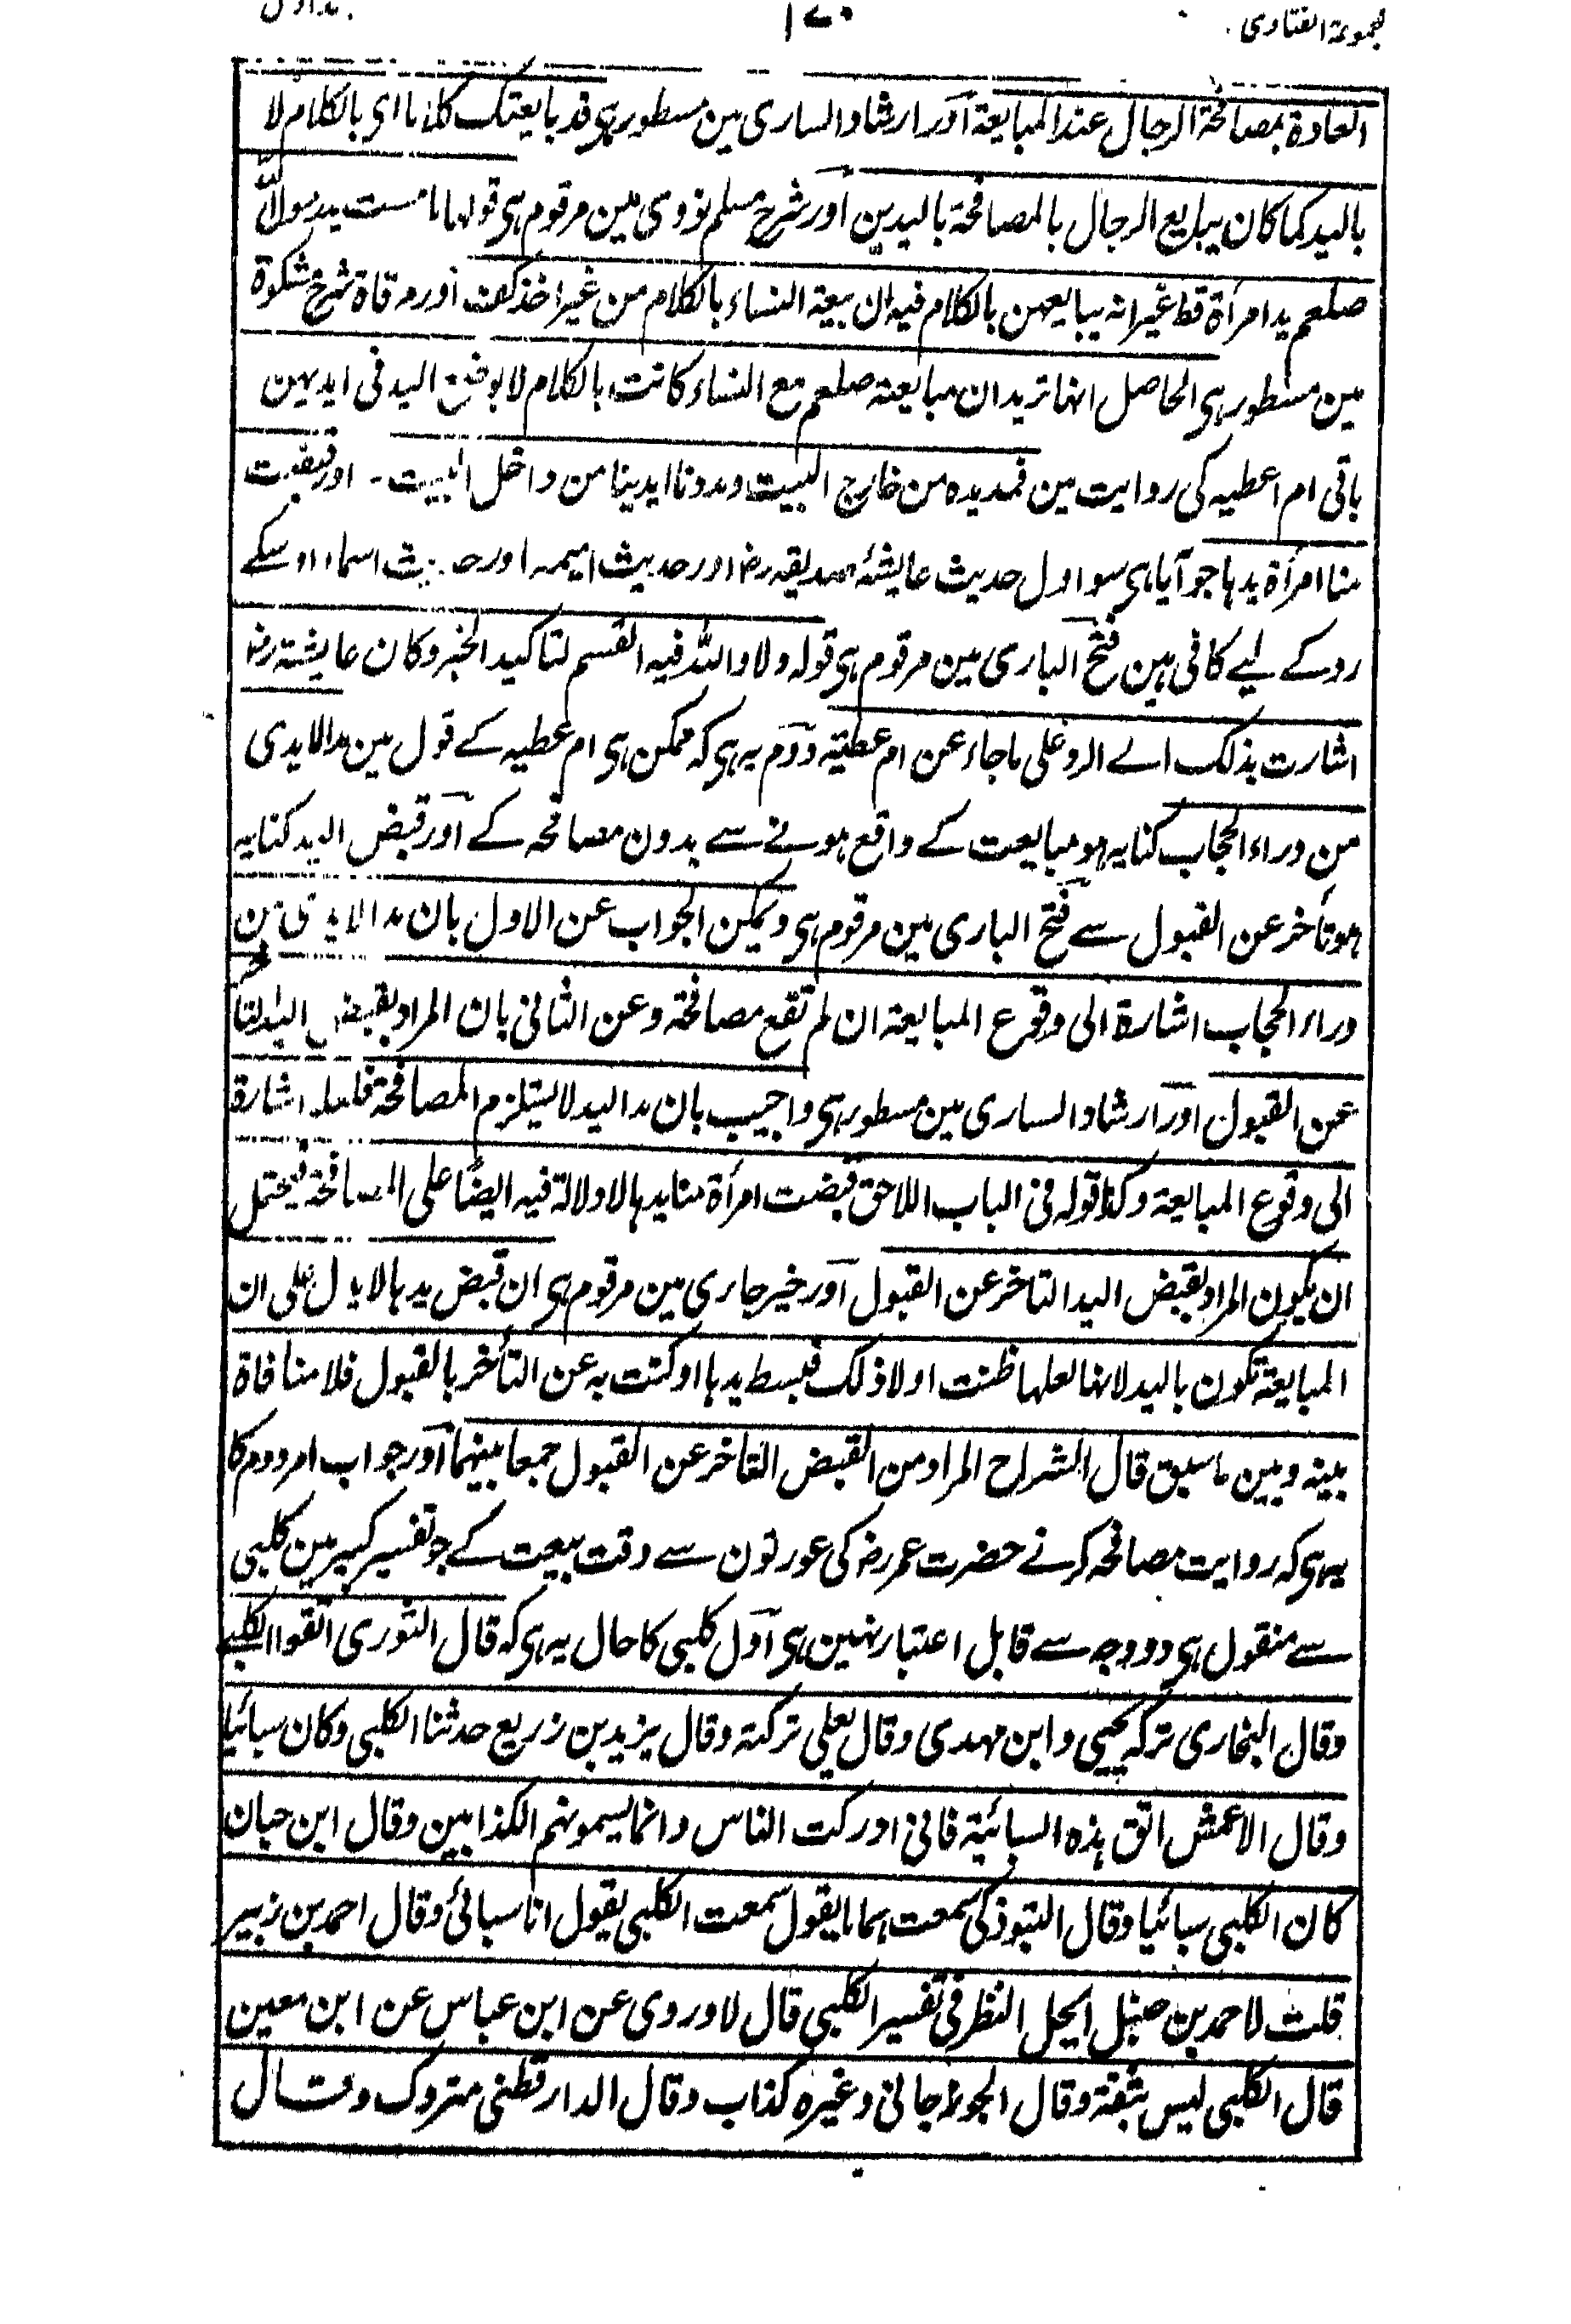 مجموعۃ الفتاوی
۱۷۰
العادة بمصافحة الرجال عند المبايعة اور ارشاد الساری مین مسطور ہی قد بايعتك كلاما اى بالكلام لا
باليد كما كان يبايع الرجال بالمصافحة باليدين اور شرح مسلم نووی مین مرقوم ہی قولها ما مست يد رسول الله
صلعم يد امرأة قط غير انه يبايعهن بالكلام فيه ان بيعة النساء بالكلام من غير اخذ كف اور مرقاة شرح مشكوة
مین مسطور ہی الحاصل انها تريد ان مبايعته صلعم مع النساء كانت بالكلام لا بوضع اليد فى ايديهن
باقی ام اعطیہ کی روایت مین فمد يده من خارج البيت ومددنا ايدينا من داخل البيت - اور قبضت
منا امرأة يدها جو آیا ہی سو اول حدیث عایشۂ صدیقہ رض اور حدیث امیمہ اور حدیث اسماء اوسکے
رد کے لیے کافی ہین فتح الباری مین مرقوم ہی قوله ولا والله فيه القسم لتاكيد الخبر وكان عايشة رض
اشارت بذلك الے الرد على ما جاء عن ام عطية دوم یہ ہی کہ ممکن ہی ام عطیہ کے قول مین مد الایدی
من وراء الحجاب کنایہ ہو مبایعت کے واقع ہونے سے بدون مصافحہ کے اور قبض الید کنایہ
ہو تأخر عن القبول سے فتح الباری مین مرقوم ہی ويمكن الجواب عن الاول بان مد الايدى من
وراء الحجاب اشارة الى وقوع المبايعة ان لم تقع مصافحة وعن الثانى بان المراد بقبض اليد التاخر
عن القبول اور ارشاد الساری مین مسطور ہی واجيب بان مد اليد لا يستلزم المصافحة فلعله اشارة
الى وقوع المبايعة وكذا قوله فى الباب اللاحق قبضت امرأة منا يدها لا دلالة فيه ايضا على المصافحة فيحتمل
ان يكون المراد بقبض اليد التاخر عن القبول اور خیر جاری مین مرقوم ہی ان قبض يدها لا يدل على ان
المبايعة تكون باليد لانها لعلها ظنت اولا ذلك فبسط يدها او كنت به عن التأخر بالقبول فلا منافاة
بينه وبين ما سبق قال الشراح المراد من القبض التاخر عن القبول جمعا بينهما اور جواب امر دوم کا
یہ ہی کہ روایت مصافحہ کرنے حضرت عمر رض کی عورتون سے وقت بیعت کے جو تفسیر کبیر مین کلبی
سے منقول ہی دو وجہ سے قابل اعتبار نہین ہی اول کلبی کا حال یہ ہی کہ قال الثورى اتقوا الكلبے
وقال البخارى تركه يحيى وابن مهدى وقال يعلى تركته وقال يزيد بن زريع حدثنا الكلبى وكان سبائيا
وقال الاعمش اتق هذه السبائية فانى ادركت الناس وانما يسمونهم الكذابين وقال ابن حبان
كان الكلبى سبائيا وقال التبوذكى سمعت هماما يقول سمعت الكلبى يقول انا سبائى وقال احمد بن زبير
قلت لاحمد بن حنبل ايحل النظر فى تفسير الكلبى قال لا وروى عن ابن عباس عن ابن معين
قال الكلبى ليس بثقة وقال الجوزجانى وغيره كذاب وقال الدارقطنى متروك وقال